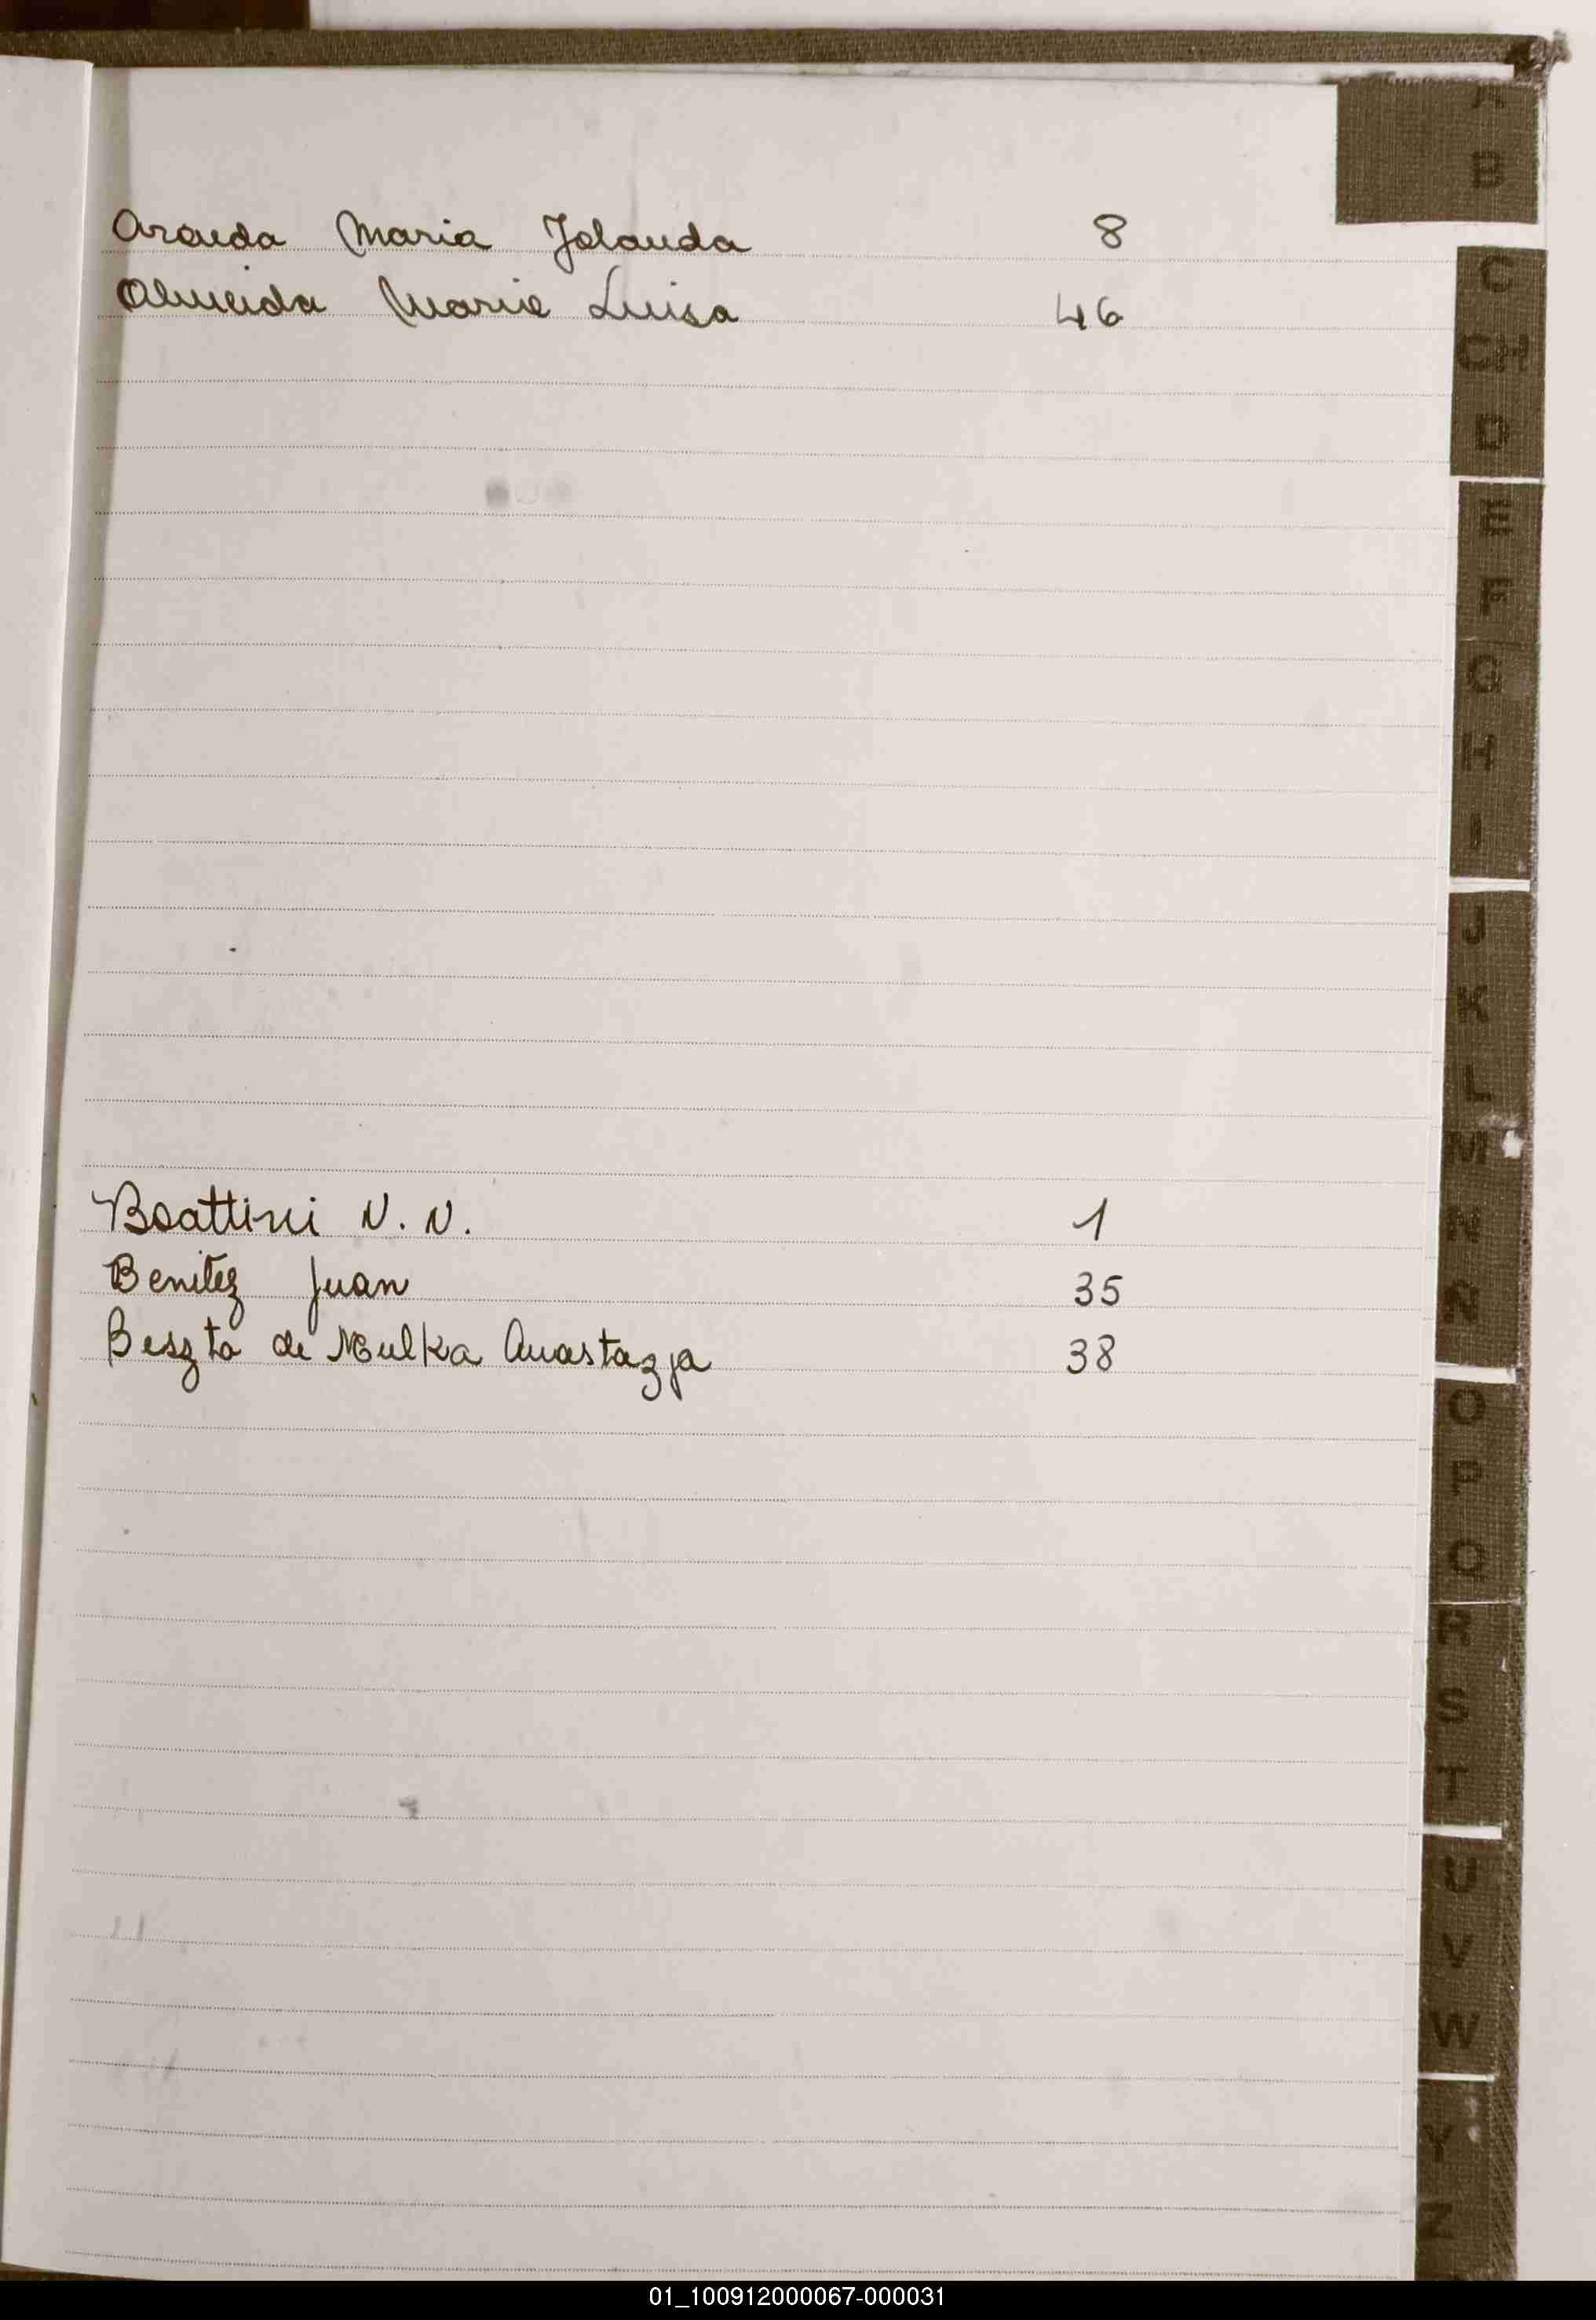 Aranda Maria Jolanda 8
Almeida Maria Luisa 46
Boattini N. N. 1
Benitez Juan 35
Beszta de Mulka Anastazja 38
A
B
C
CH
D
E
F
G
H
I
J
K
L
M
N
Ñ
O
P
Q
R
S
T
U
V
W
Y
Z
01_100912000067-000031